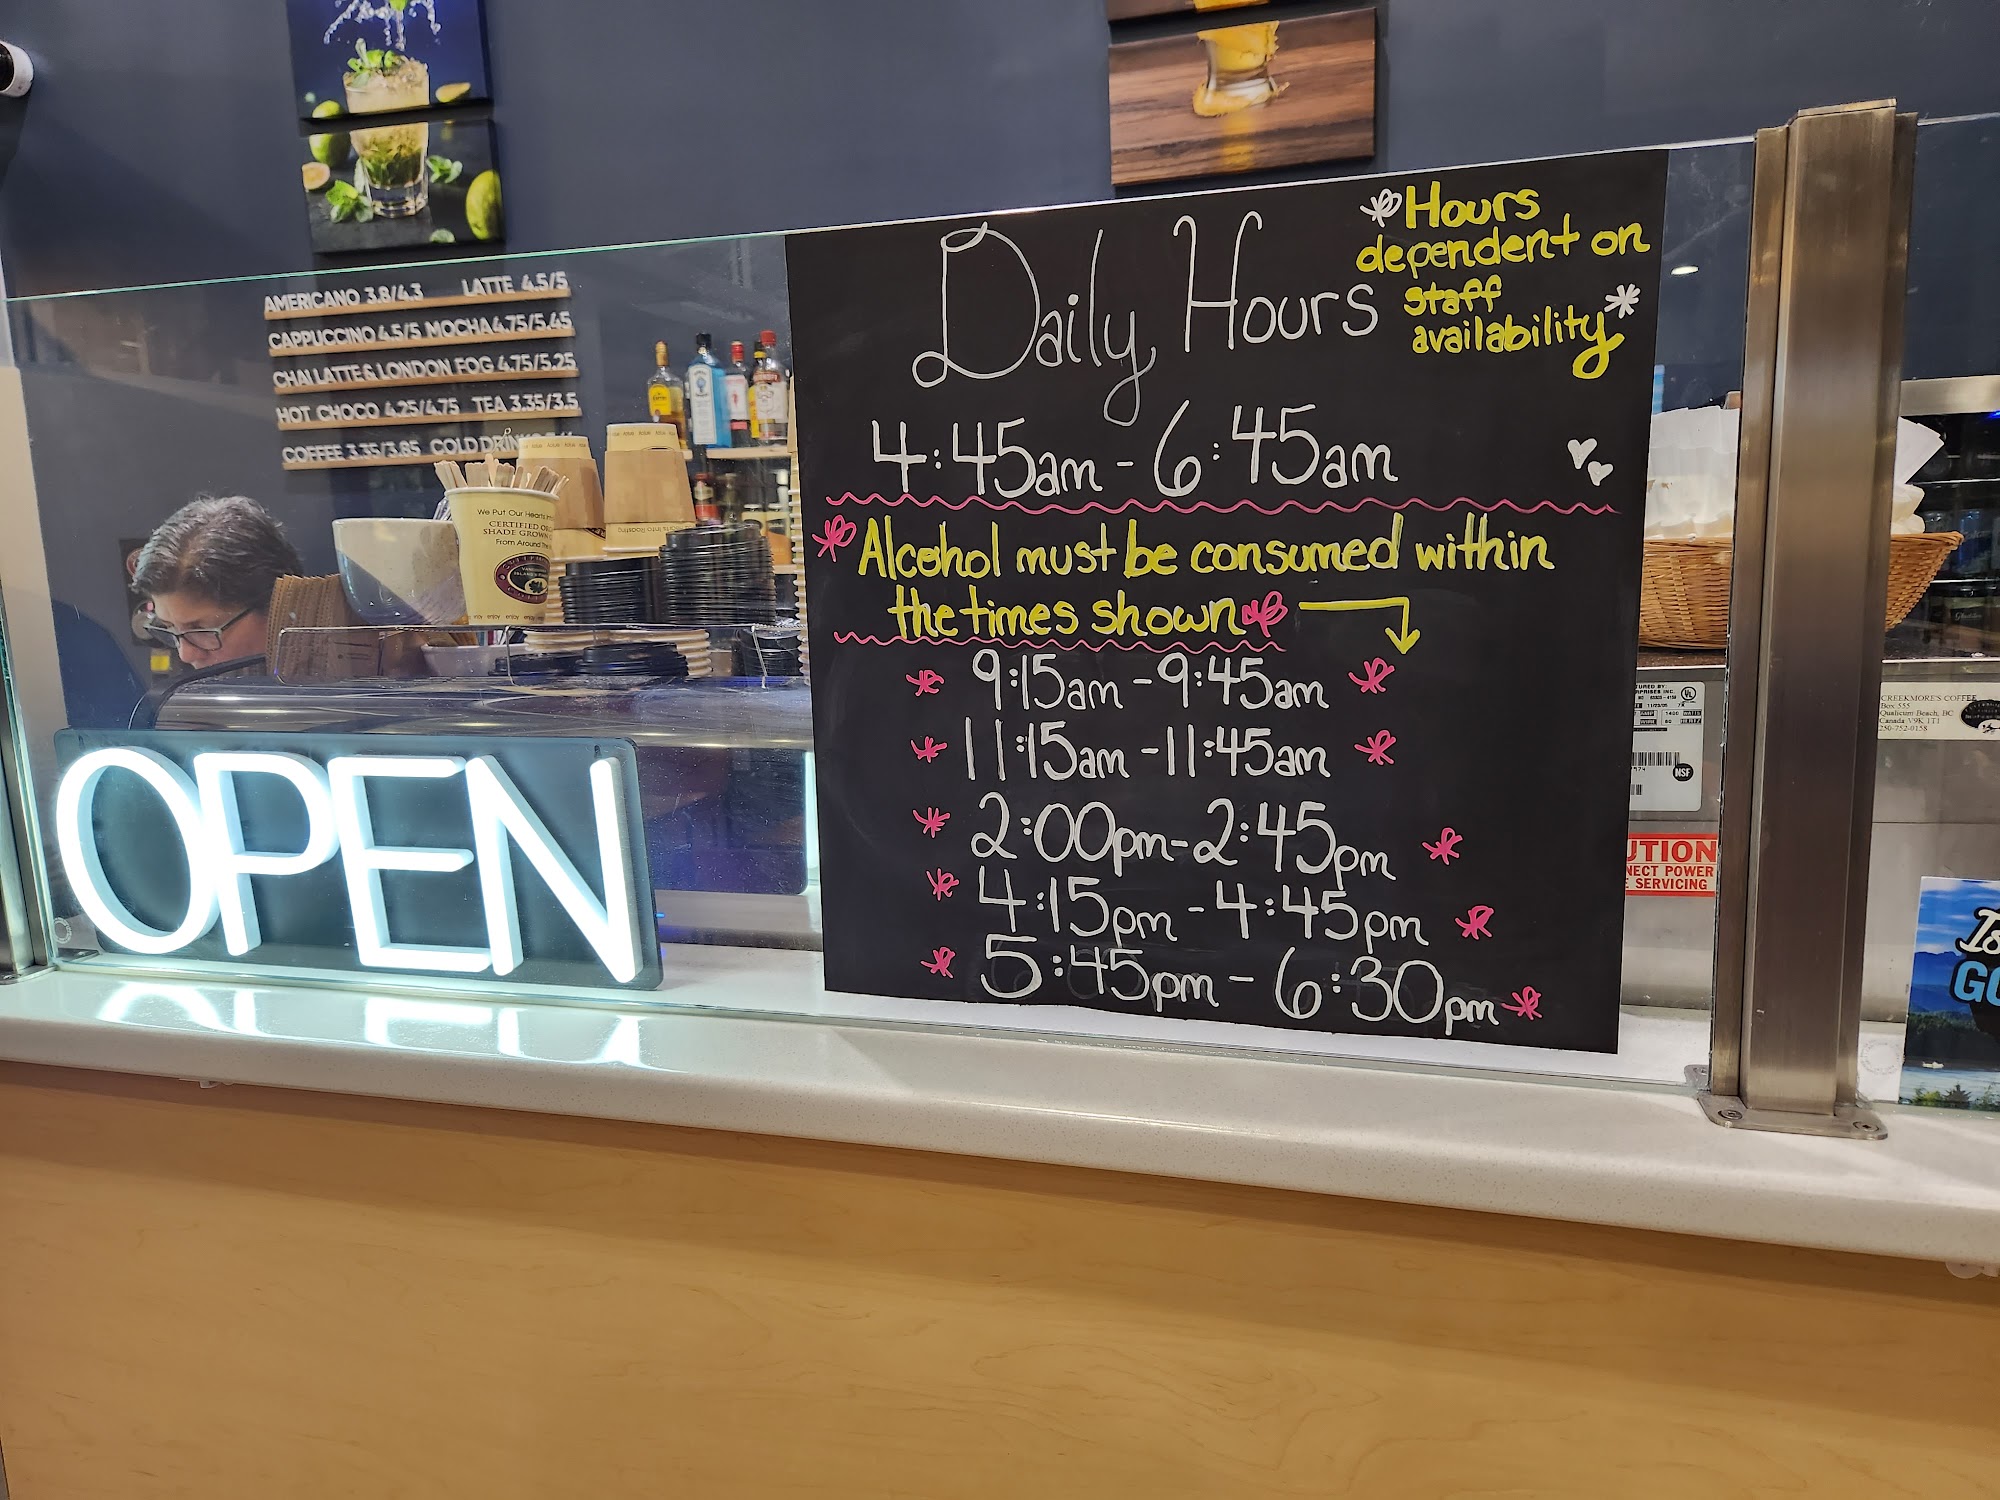 AMERICANO 3.8/4.3 LATTE 4.5/5
CAPPUCCINO 4.5/5 MOCHA 4.75/5.45
CHAI LATTE & LONDON FOG 4.75/5.25
HOT CHOCO 4.25/4.75 TEA 3.35/3.5
COFFEE 3.35/3.85 COLD DRIN
We Put Our Hearts
CERTIFIED OR
SHADE GROWN
From Around The
OPEN
Daily Hours
*Hours
dependent on
staff
availability*
4:45am - 6:45am
*Alcohol must be consumed within
the times shown*
* 9:15am - 9:45am *
* 11:15am - 11:45am *
* 2:00pm - 2:45pm *
* 4:15pm - 4:45pm *
* 5:45pm - 6:30pm *
UTION
NECT POWER
E SERVICING
NSF
CREEKMORE'S COFFEE
Box 555
Qualicum Beach, BC
Canada V9K 1T1
250-752-0158
Is
GO